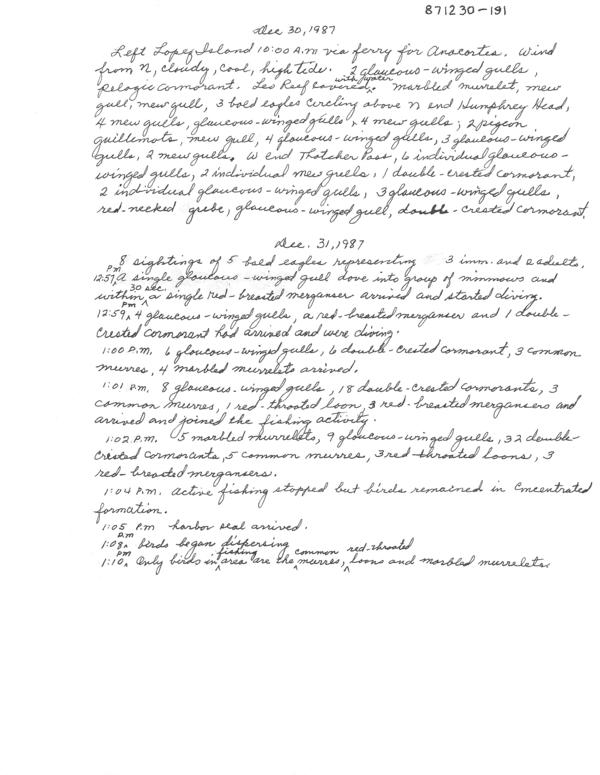 871230-191
Dec 30, 1987
Left Lopez Island 10:00 A.M via ferry for Anacortes. Wind
from N, cloudy, cool, high tide. 2 glaucous-winged gulls,
pelagic cormorant. Leo Reef covered with water. marbled murrelet, mew
gull, mew gull, 3 bald eagles circling above N end Humphrey Head,
4 mew gulls, glaucous-winged gulls, 4 mew gulls; 2 pigeon
guillemots, mew gull, 4 glaucous-winged gulls, 3 glaucous-winged
gulls, 2 mew gulls. W end Thatcher Pass, 6 individual glaucous-
winged gulls, 2 individual mew gulls, 1 double-crested cormorant,
2 individual glaucous-winged gulls, 3 glaucous-winged gulls,
red-necked grebe, glaucous-winged gull, double-crested cormorant.
Dec. 31, 1987
8 sightings of 5 bald eagles representing 3 imm. and 2 adults.
12:57 PM a single glaucous-winged gull dove into group of minnows and
within 30 sec. a single red-breasted merganser arrived and started diving.
12:59 PM 4 glaucous-winged gulls, a red-breasted merganser and 1 double-
crested cormorant had arrived and were diving.
1:00 P.M. 6 glaucous-winged gulls, 6 double-crested cormorant, 3 common
murres, 4 marbled murrelets arrived.
1:01 P.M. 8 glaucous-winged gulls, 18 double-crested cormorants, 3
common murres, 1 red-throated loon, 3 red-breasted mergansers and
arrived and joined the fishing activity.
1:02 P.M. 5 marbled murrelets, 9 glaucous-winged gulls, 32 double-
crested cormorants, 5 common murres, 3 red-throated loons, 3
red-breasted mergansers.
1:04 P.M. Active fishing stopped but birds remained in concentrated
formation.
1:05 P.M harbor seal arrived.
1:08 P.M birds began dispersing
1:10 PM Only birds in fishing area are the common murres, red-throated loons and marbled murrelets.